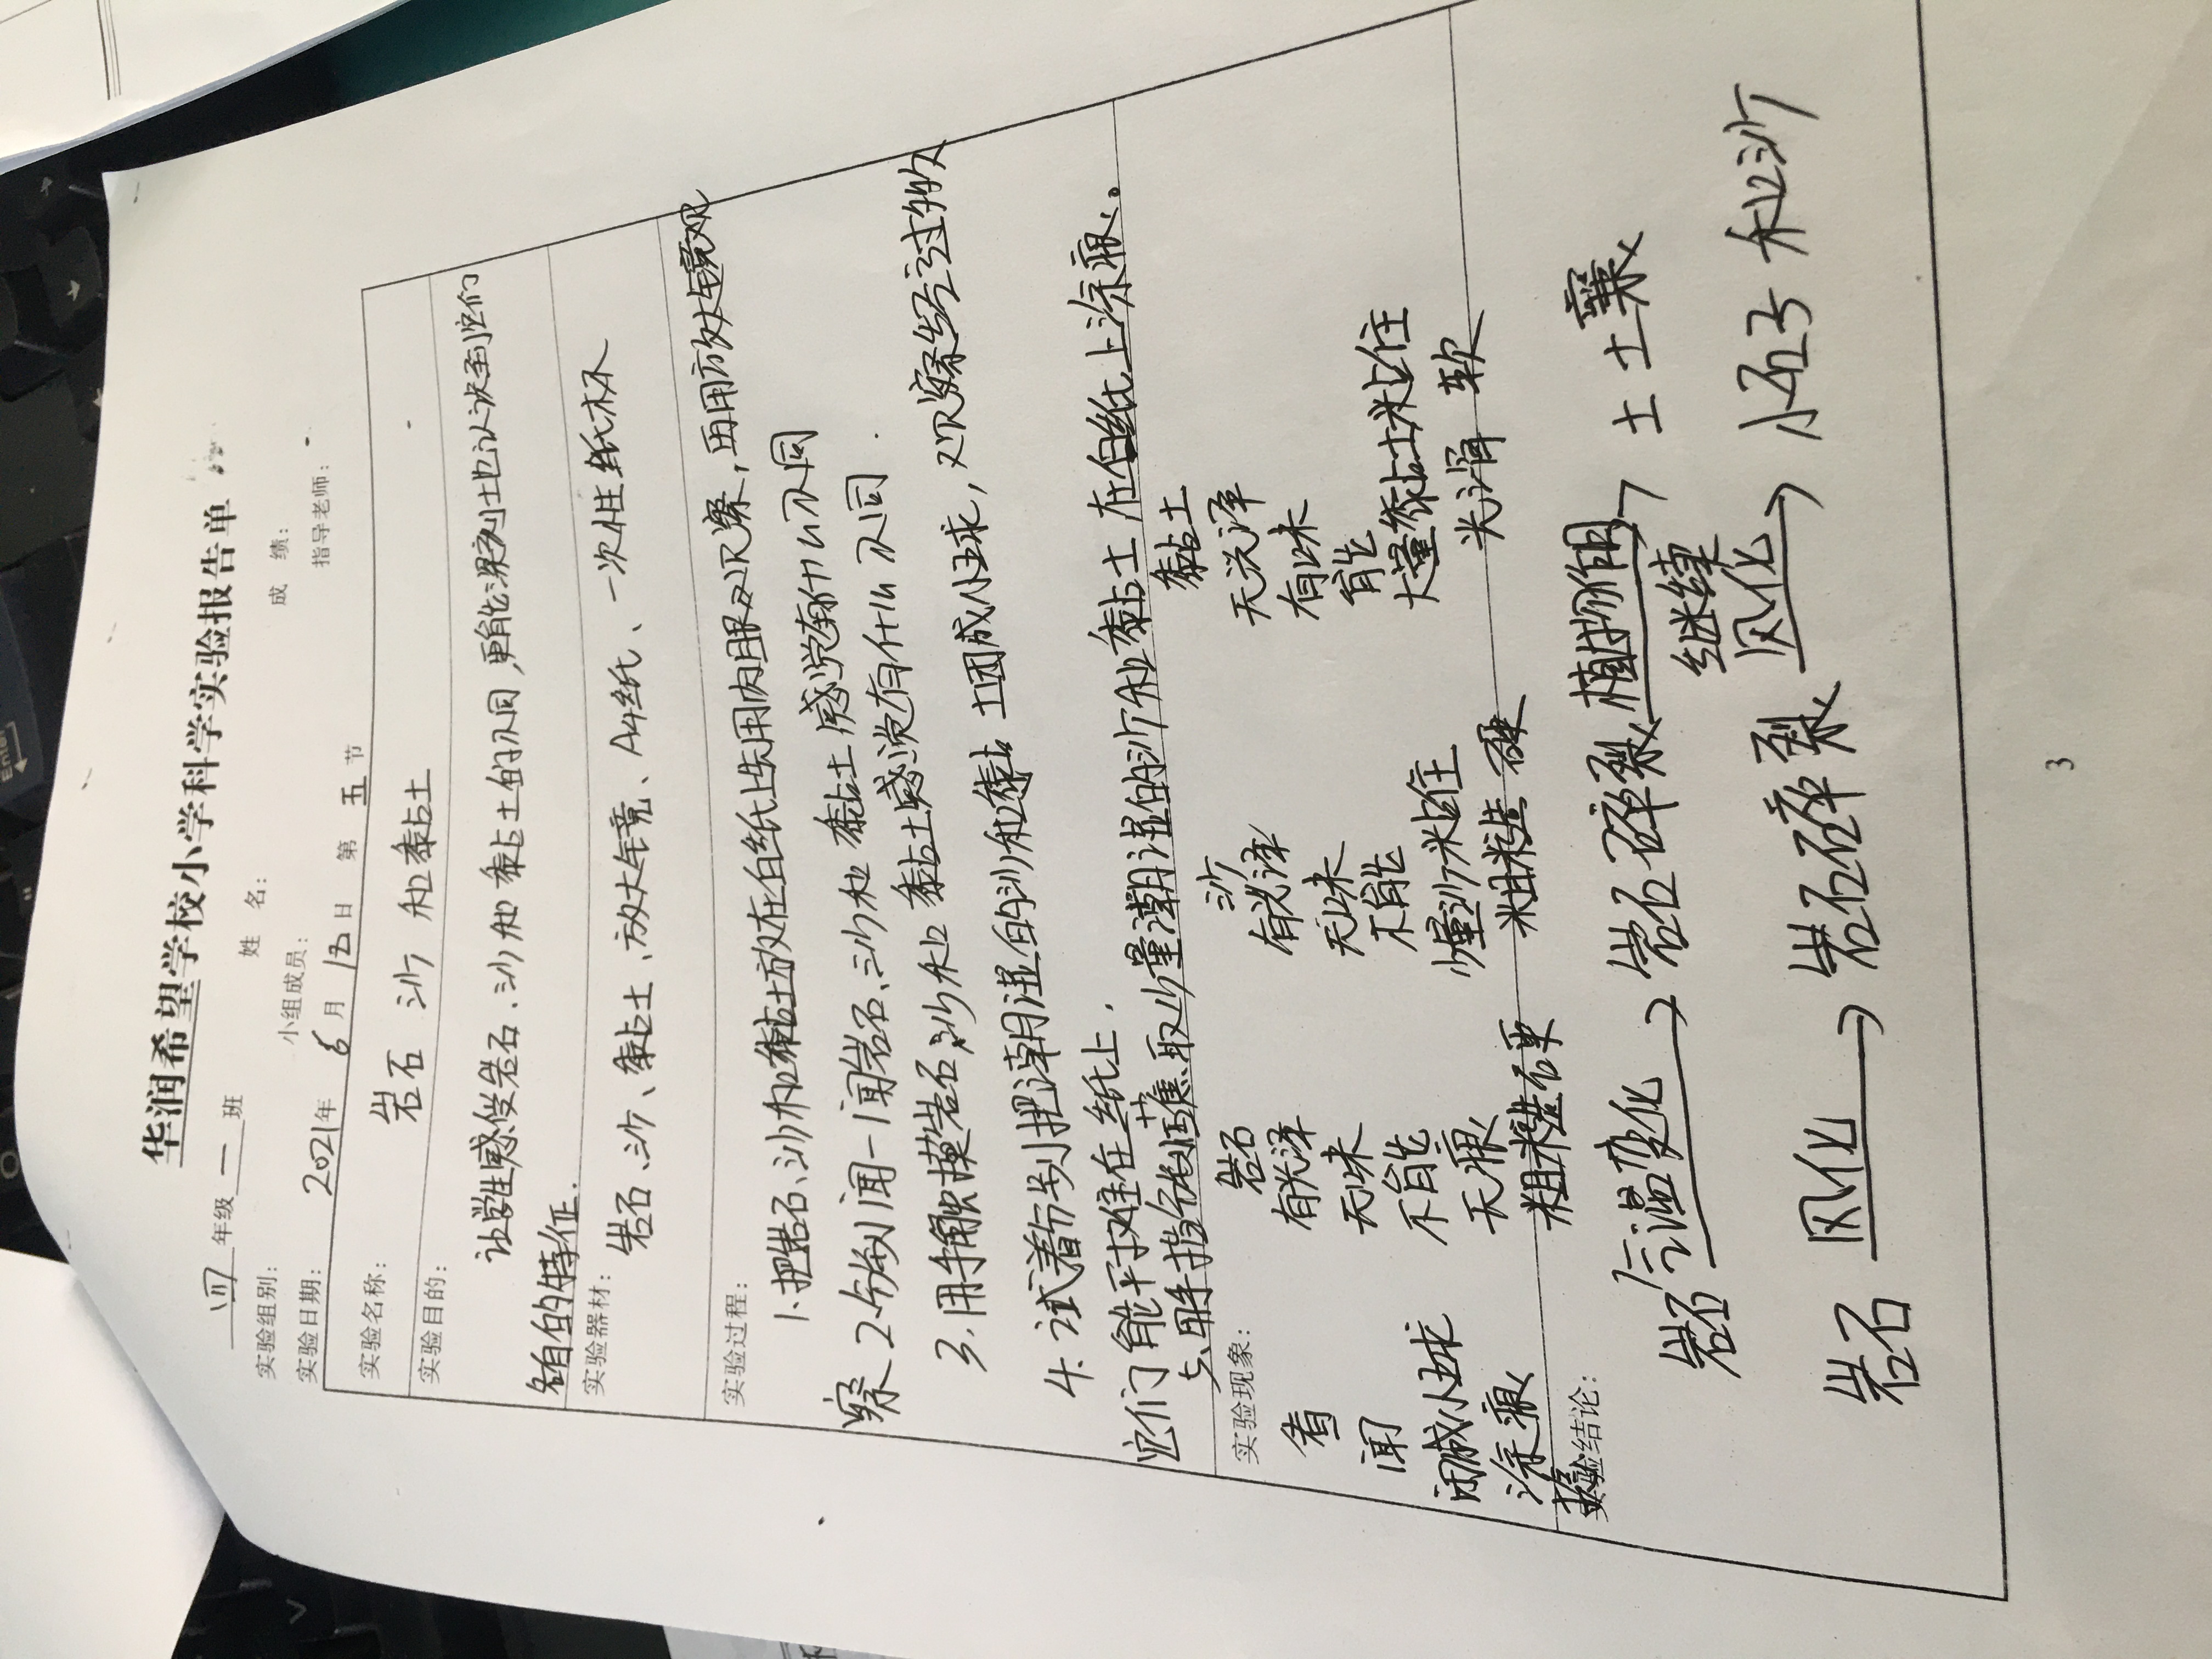 华润希望学校小学科学实验报告单
四年级一班 姓 名： 成 绩：
实验组别： 小组成员： 指导老师：
实验日期： 2021年 6月 15日 第 五 节
实验名称： 岩石 沙 和黏土
实验目的：
让学生感受岩石、沙和黏土的不同,更能深刻地认识到它们
各自的特征.
实验器材： 岩石、沙、黏土、放大镜、A4纸、一次性纸杯
实验过程：
1.把岩石、沙和黏土放在白纸上先用肉眼观察,再用放大镜观
察 2.分别闻一闻岩石、沙和黏土感觉有什么不同
3.用手触摸岩石、沙和黏土感觉有什么不同
4.试着分别把潮湿的沙和黏土团成小球,观察经过数次
它们能平摊在纸上.
5.用手指分别蘸取少量潮湿的沙和黏土在白纸上涂痕。
实验现象： 岩石 沙 黏土
看 有光泽 有光泽 无光泽
闻 无味 无味 有味
团成小球 不能 不能 能
涂痕 无痕 少量沙粘住 大量黏土粘住
粗糙 硬 粗糙 硬 光滑 软
实验结论：
岩石 气温变化 → 岩石碎裂 植物作用 → 土 土壤
继续
岩石 风化 → 岩石碎裂 风化 → 小石子和沙
3